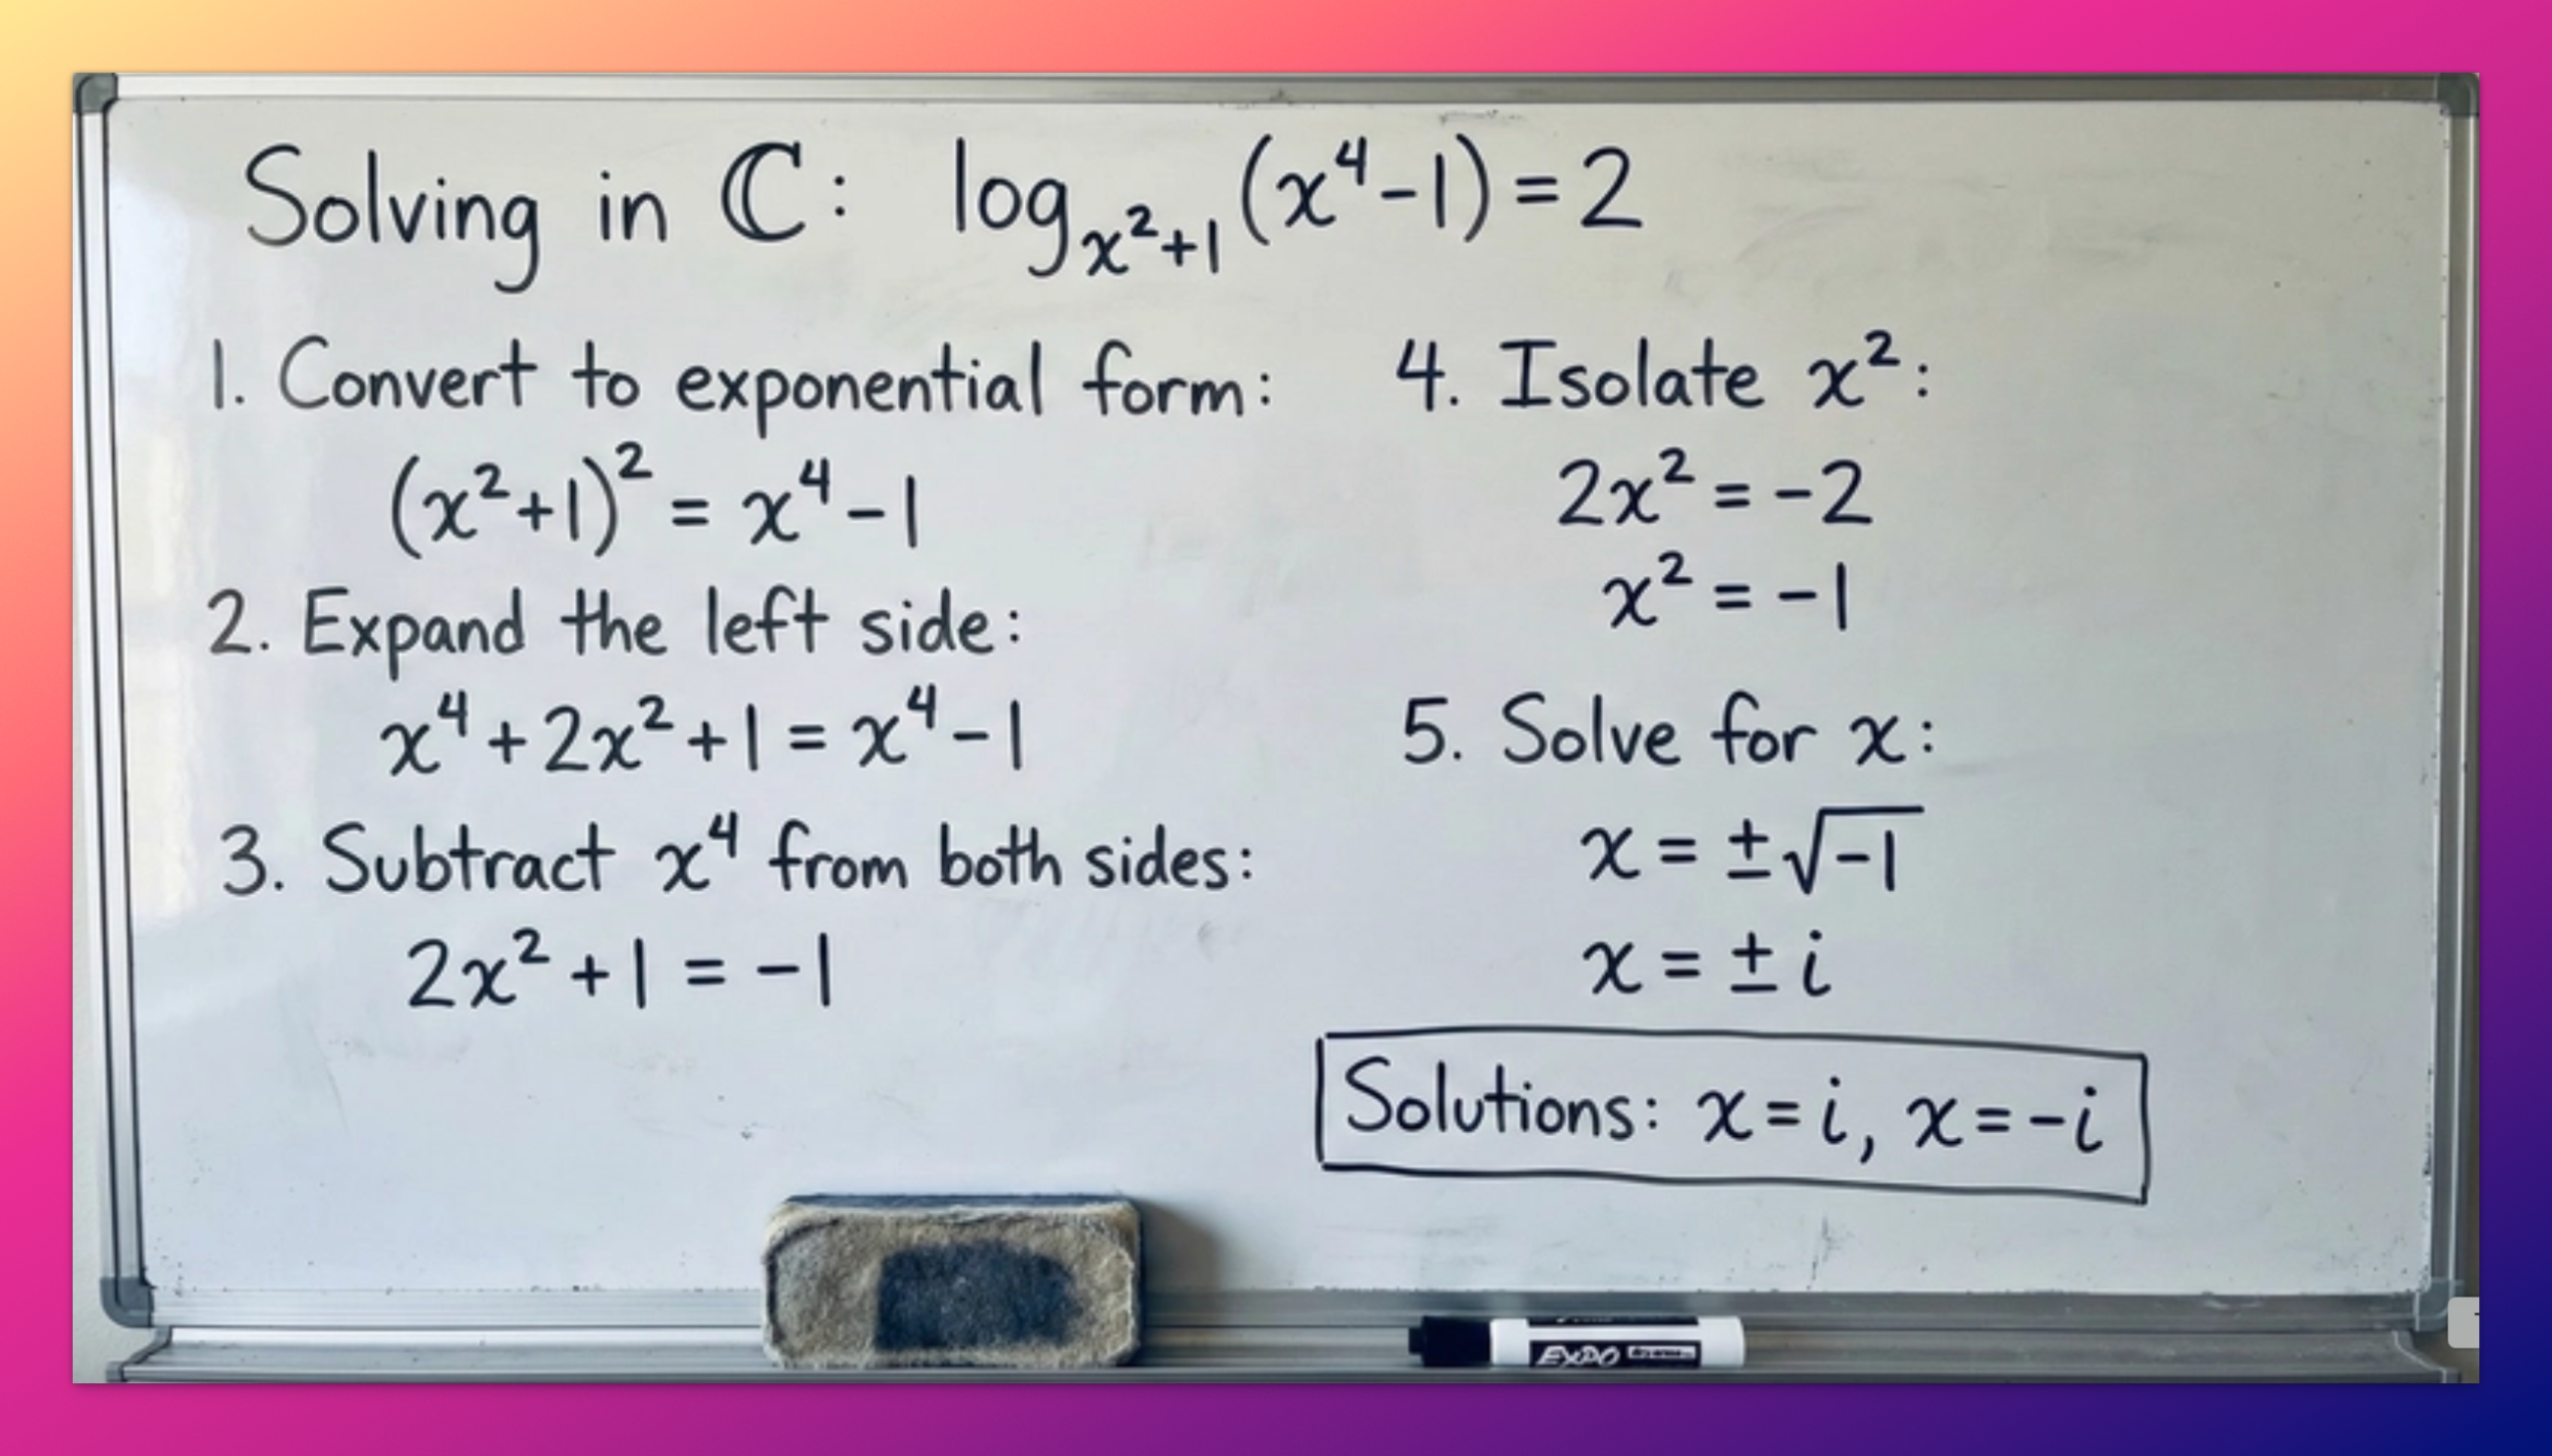 Solving in ℂ: log_{x²+1}(x⁴-1)=2
1. Convert to exponential form:
(x²+1)² = x⁴-1
2. Expand the left side:
x⁴+2x²+1 = x⁴-1
3. Subtract x⁴ from both sides:
2x²+1 = -1
4. Isolate x²:
2x² = -2
x² = -1
5. Solve for x:
x = ±√-1
x = ±i
Solutions: x=i, x=-i
EXPO